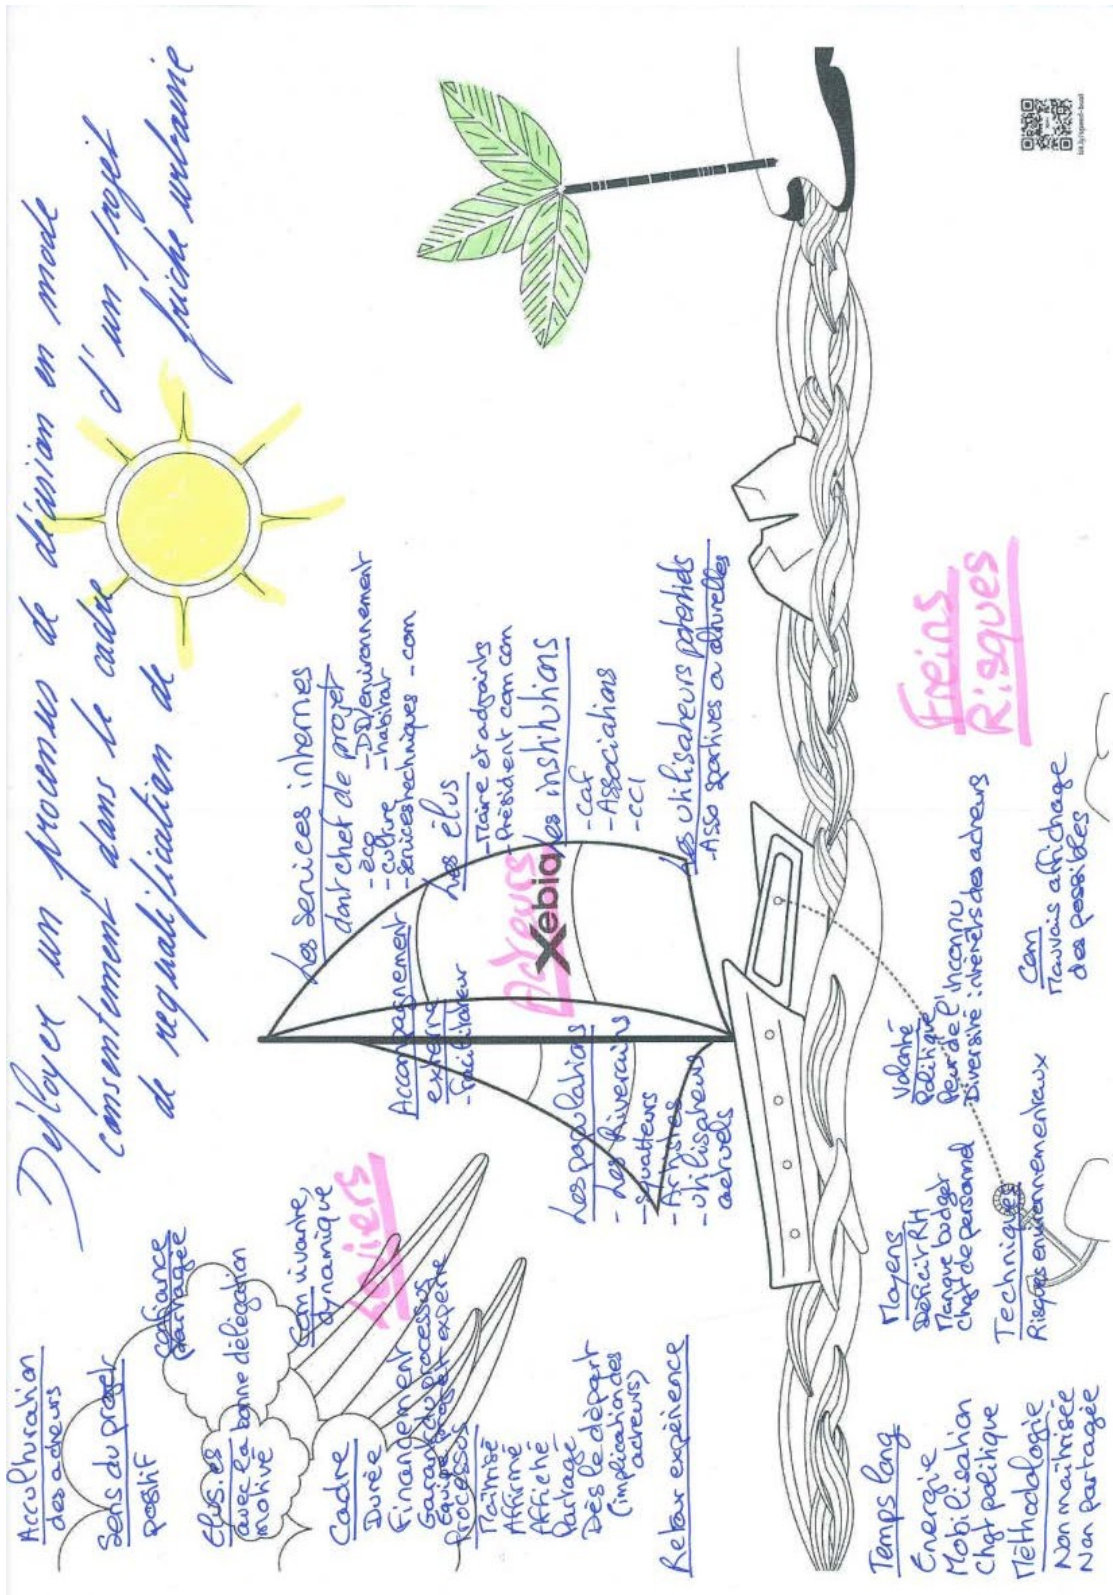 Déployer un processus de décision en mode
consentement dans le cadre d'un projet
de requalification de friche urbaine
Acculturation
des acteurs
Sens du projet
positif
Confiance
partagée
Elus.es
avec la bonne délégation
motivé
Com vivante,
dynamique
Leviers
Cadre
Durée
Financement
Garant du processus
Equipe projet experte
Processus
Maîtrisé
Affirmé
Affiché
Partagé
Dès le départ
(implication des
acteurs)
Retour expérience
Les services internes
dont chef de projet
- éco - DD/environnement
- culture - habitat
- services techniques - com
Accompagnement
externe
- Facilitateur
Les élus
- Maire et adjoints
- Président com com
Acteurs
Xebia
Les institutions
- Caf
- Associations
- CCI
Les populations
- Les Riverains
- Squatteurs
- Artistes
- Utilisateurs
actuels
Les utilisateurs potentiels
- Asso sportives ou culturelles
Freins
Risques
Temps long
Energie
Mobilisation
Chgt politique
Méthodologie
Non maîtrisée
Non partagée
Moyens
Déficit RH
Manque budget
Chgt de personnel
Techniques
Risques environnementaux
Volonté
Politique
Peur de l'inconnu
Diversité : intérêts des acteurs
Com
Mauvais affichage
des possibles
bit.ly/speed-boat